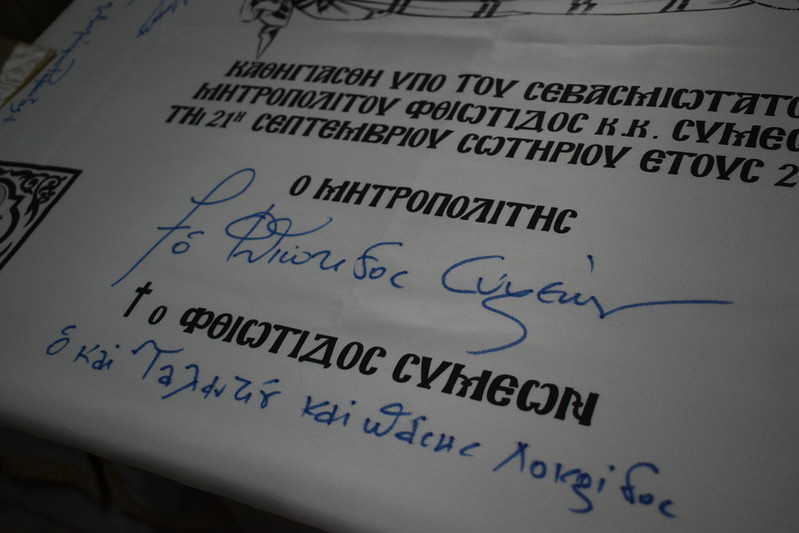 ΚΑΘΗΓΙΑΣΘΗ ΥΠΟ ΤΟΥ ΣΕΒΑΣΜΙΩΤΑΤΟ
ΜΗΤΡΟΠΟΛΙΤΟΥ ΦΘΙΩΤΙΔΟΣ Κ.Κ. ΣΥΜΕΩ
ΤΗΙ 21Η ΣΕΠΤΕΜΒΡΙΟΥ ΣΩΤΗΡΙΟΥ ΕΤΟΥΣ 2
Ο ΜΗΤΡΟΠΟΛΙΤΗΣ
† ὁ Φθιώτιδος Συμεών
† Ο ΦΘΙΩΤΙΔΟΣ ΣΥΜΕΩΝ
ὁ καὶ Ταλαντίου καὶ πάσης Λοκρίδος